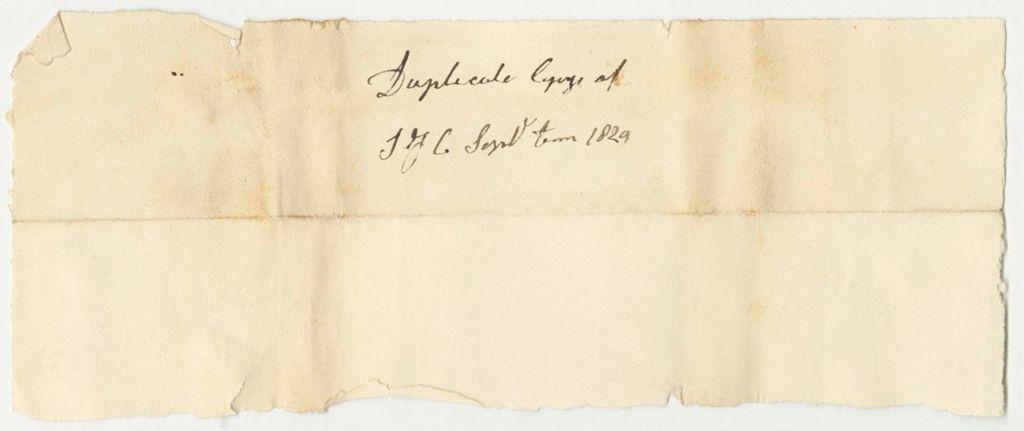 Duplicate Copys of
S J C Septr term 1829